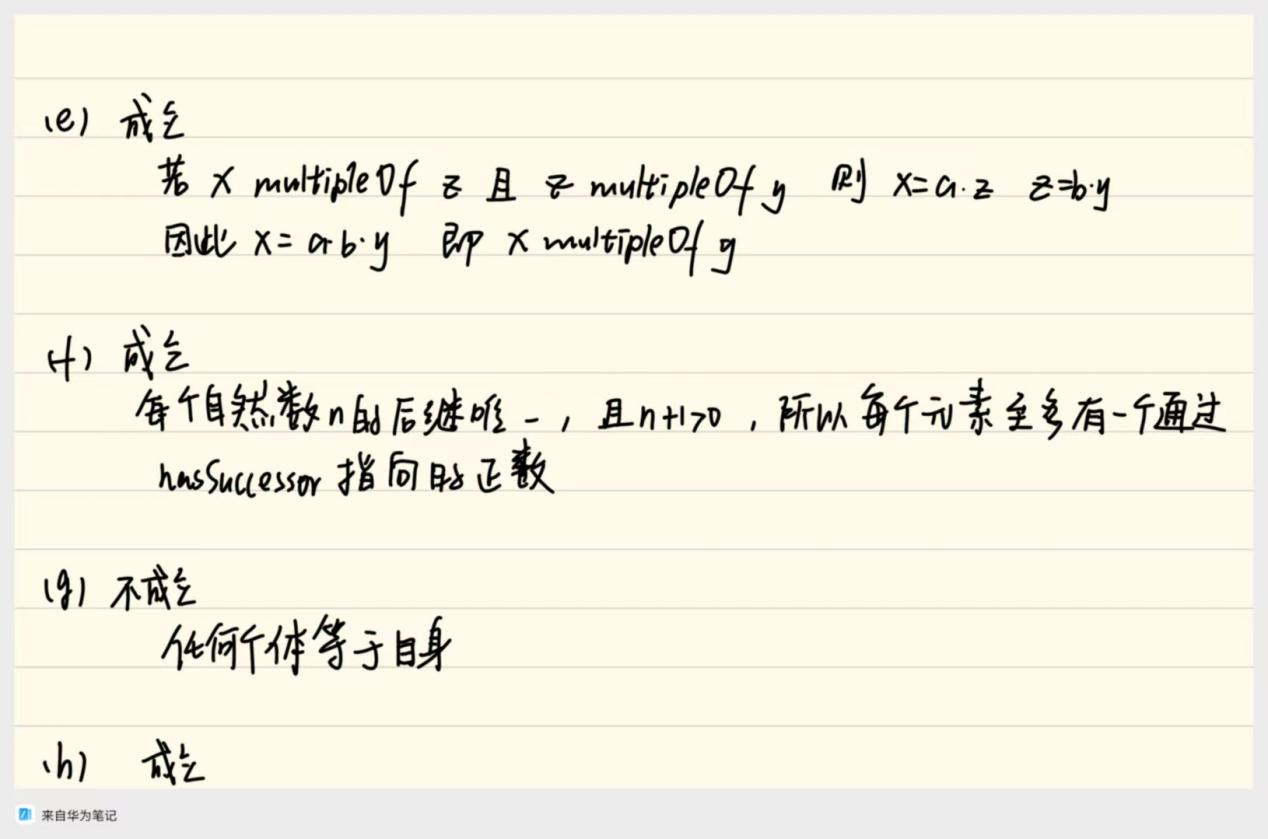 (e) 成立
若 x multipleOf z 且 z multipleOf y 则 x=a·z z=b·y
因此 x= a·b·y 即 x multipleOf y
(f) 成立
每个自然数n的后继唯一，且n+1>0，所以每个元素至多有一个通过
hasSuccessor 指向的正数
(g) 不成立
任何个体等于自身
(h) 成立
来自华为笔记